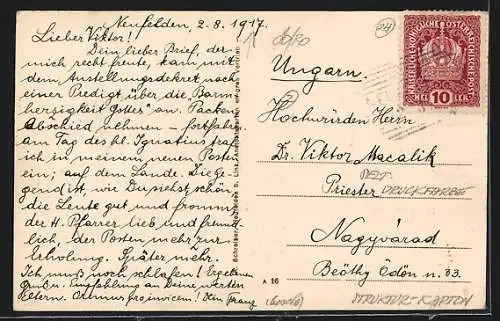 Neufelden, 2.8.1917.
Lieber Viktor!
Dein lieber Brief, der
mich recht freute, kam mit
dem Anstellungsdekret nach
einer Predigt über die "Barm-
herzigkeit Gottes" an. Packen,
Abschied nehmen – fortfahren.
am Tag des hl. Ignatius traf
ich in meinem neuen Posten
ein; auf dem Lande. Die Ge-
gend ist, wie Du siehst, schön,
die Leute gut und fromm,
der H. Pfarrer lieb und freund-
lich, der Posten mehr zur
Erholung. Später mehr.
Ich muß noch schlafen!
Gruß u. Empfehlung an Deine werten
Eltern. Oremus pro invicem! Dein Franz
A 16
Ungarn.
Hochwürden Herrn
Dr. Viktor Macalik
Priester
Nagyvárad
Beöthy Ödön u. 33.
KAISERLICH KÖNIGLICHE ÖSTERREICHISCHE POST
HELLER 10
DRUCKFARBE
STRUKTUR-KARTON